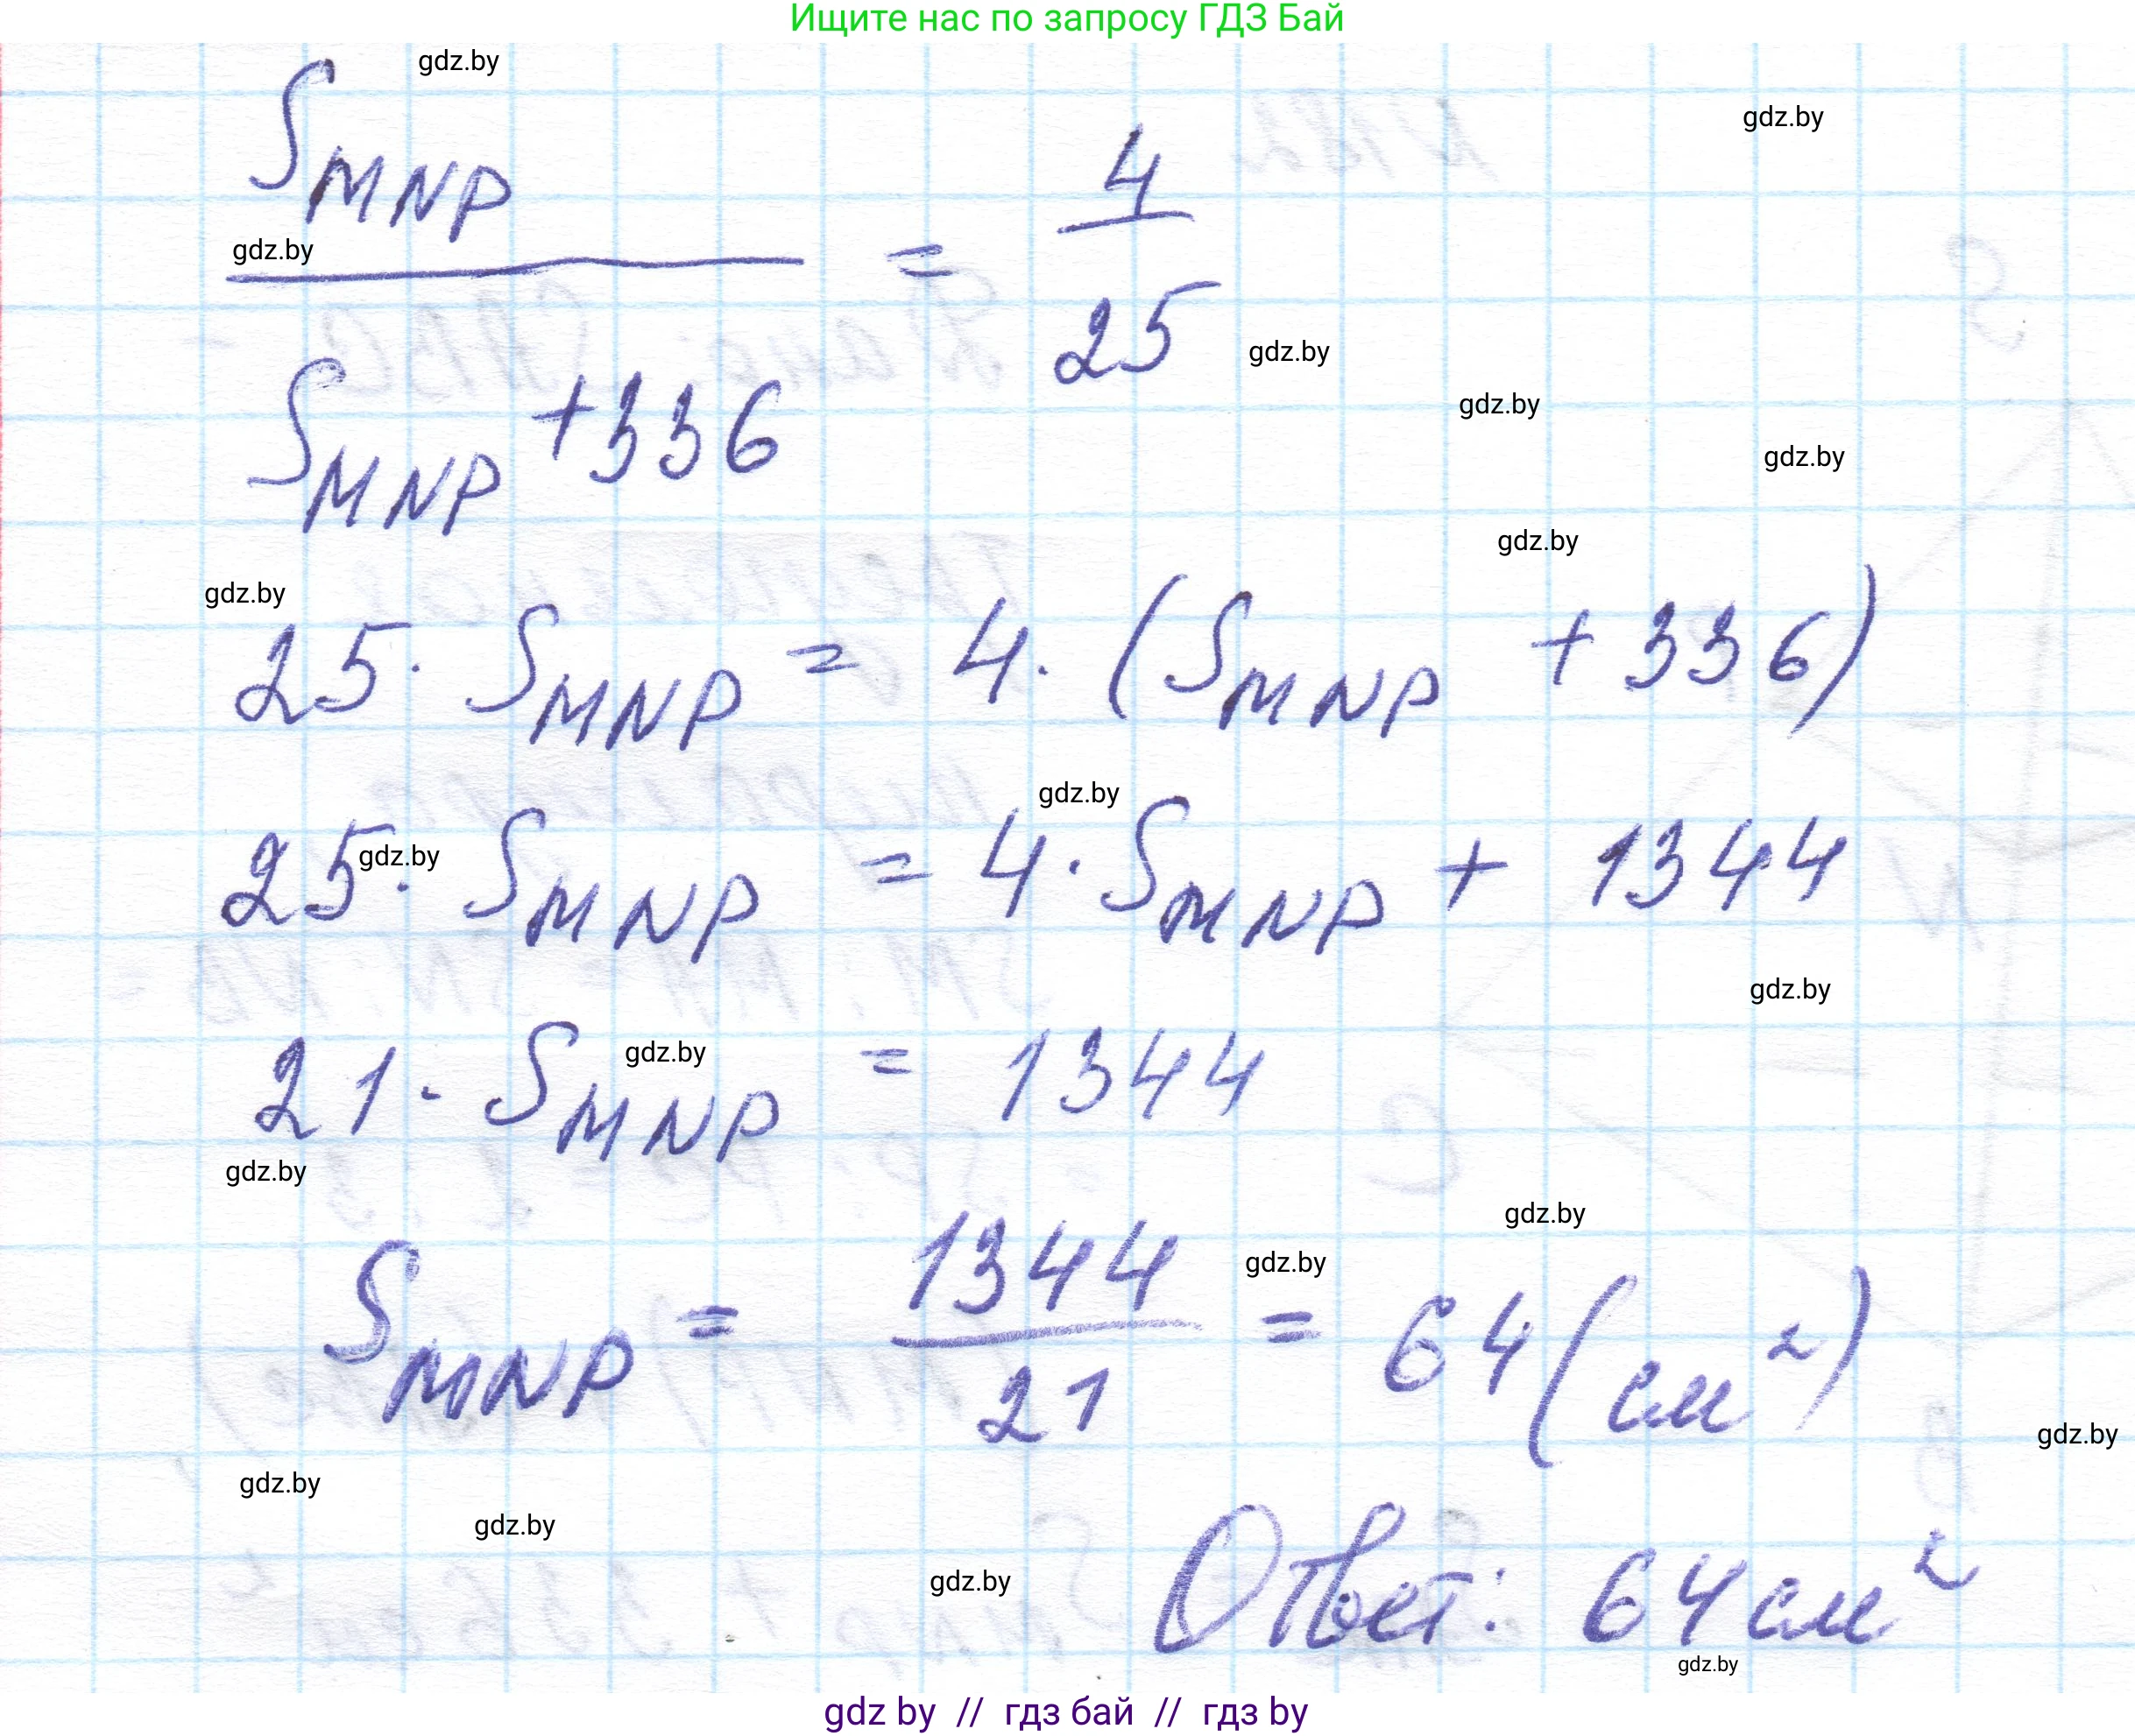 Ищите нас по запросу ГДЗ Бай
gdz.by
gdz.by
S_MNP / (S_MNP + 336) = 4/25
gdz.by
gdz.by
gdz.by
gdz.by
gdz.by
gdz.by
25 · S_MNP = 4 · (S_MNP + 336)
gdz.by
gdz.by
25 · S_MNP = 4 · S_MNP + 1344
gdz.by
gdz.by
21 · S_MNP = 1344
gdz.by
gdz.by
gdz.by
S_MNP = 1344/21 = 64 (см²)
gdz.by
gdz.by
gdz.by
gdz.by
Ответ: 64 см²
gdz.by
gdz by // гдз бай // гдз by